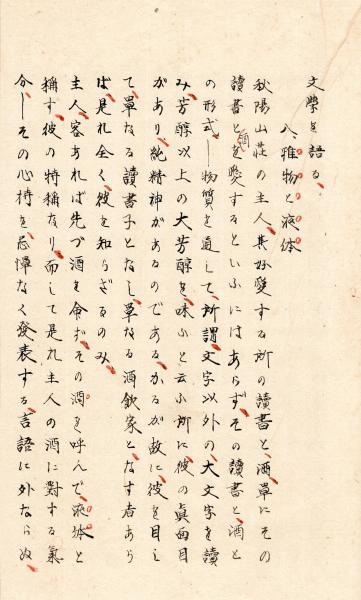 文學を語る、
八、雅物と液体
秋陽山荘の主人、其好愛する所の讀書と、酒單にその
讀書と酒とを愛するといふにはあらず、その讀書と酒と
の形式—物質を通して、所謂文字以外の、大文字を讀
み、芳醇以上の大芳醇を、味ふと云ふ所に、彼の眞面目
があり、純精神があるのである、かるが故に、彼を目し
て、單なる讀書子となし、單なる酒飲家となす者あら
ば、是れ全く、彼を知らざるのみ、
主人、客あれば先づ酒を命ず、その酒を呼んで、液体と
稱す、彼の特稱なり、而して是れ主人の酒に對する氣
分—その心持を、忌憚なく發表する、言語に外ならぬ、